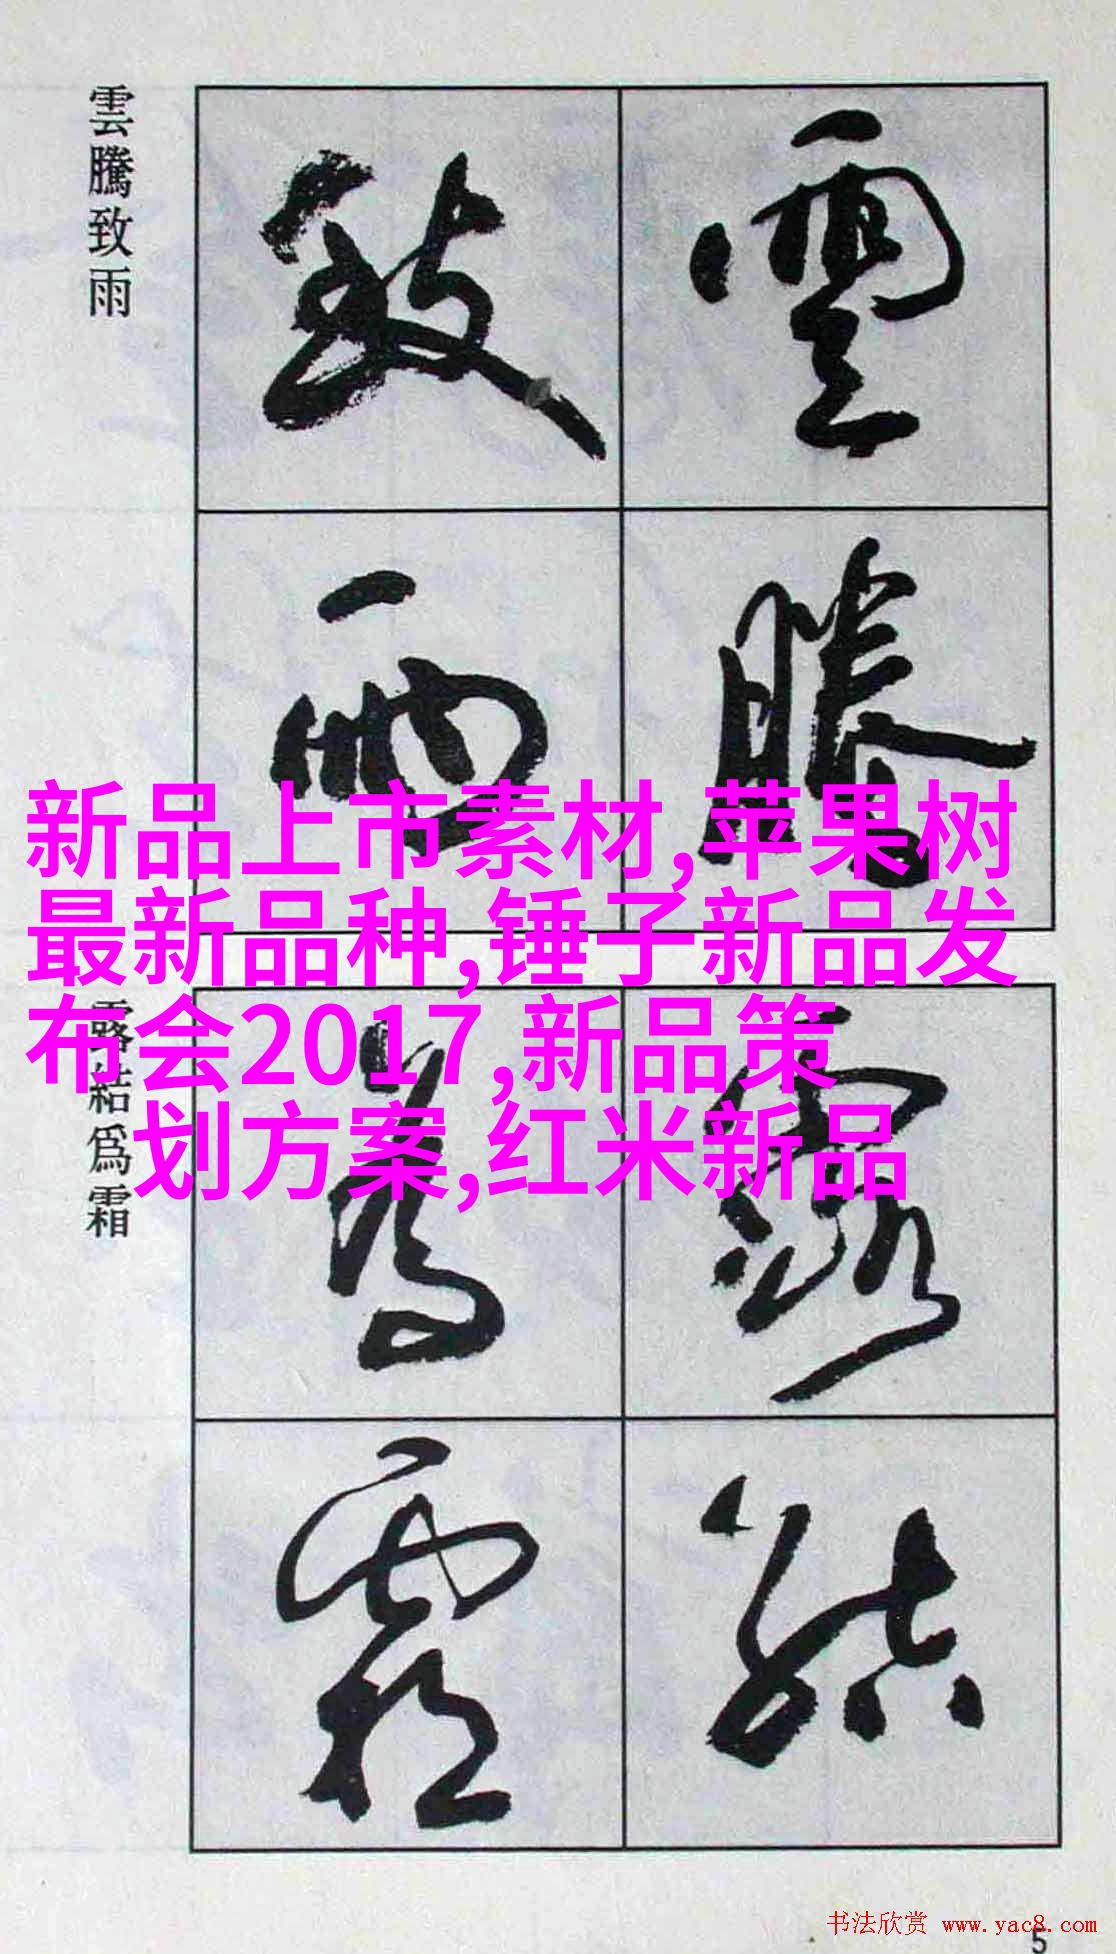 雲騰致雨
雲騰
致雨
新品上市素材,苹果树
最新品种,锤子新品发
布会2017,新品策
划方案,红米新品
露結爲霜
露結
爲霜
书法欣赏 www.yac8.com
5